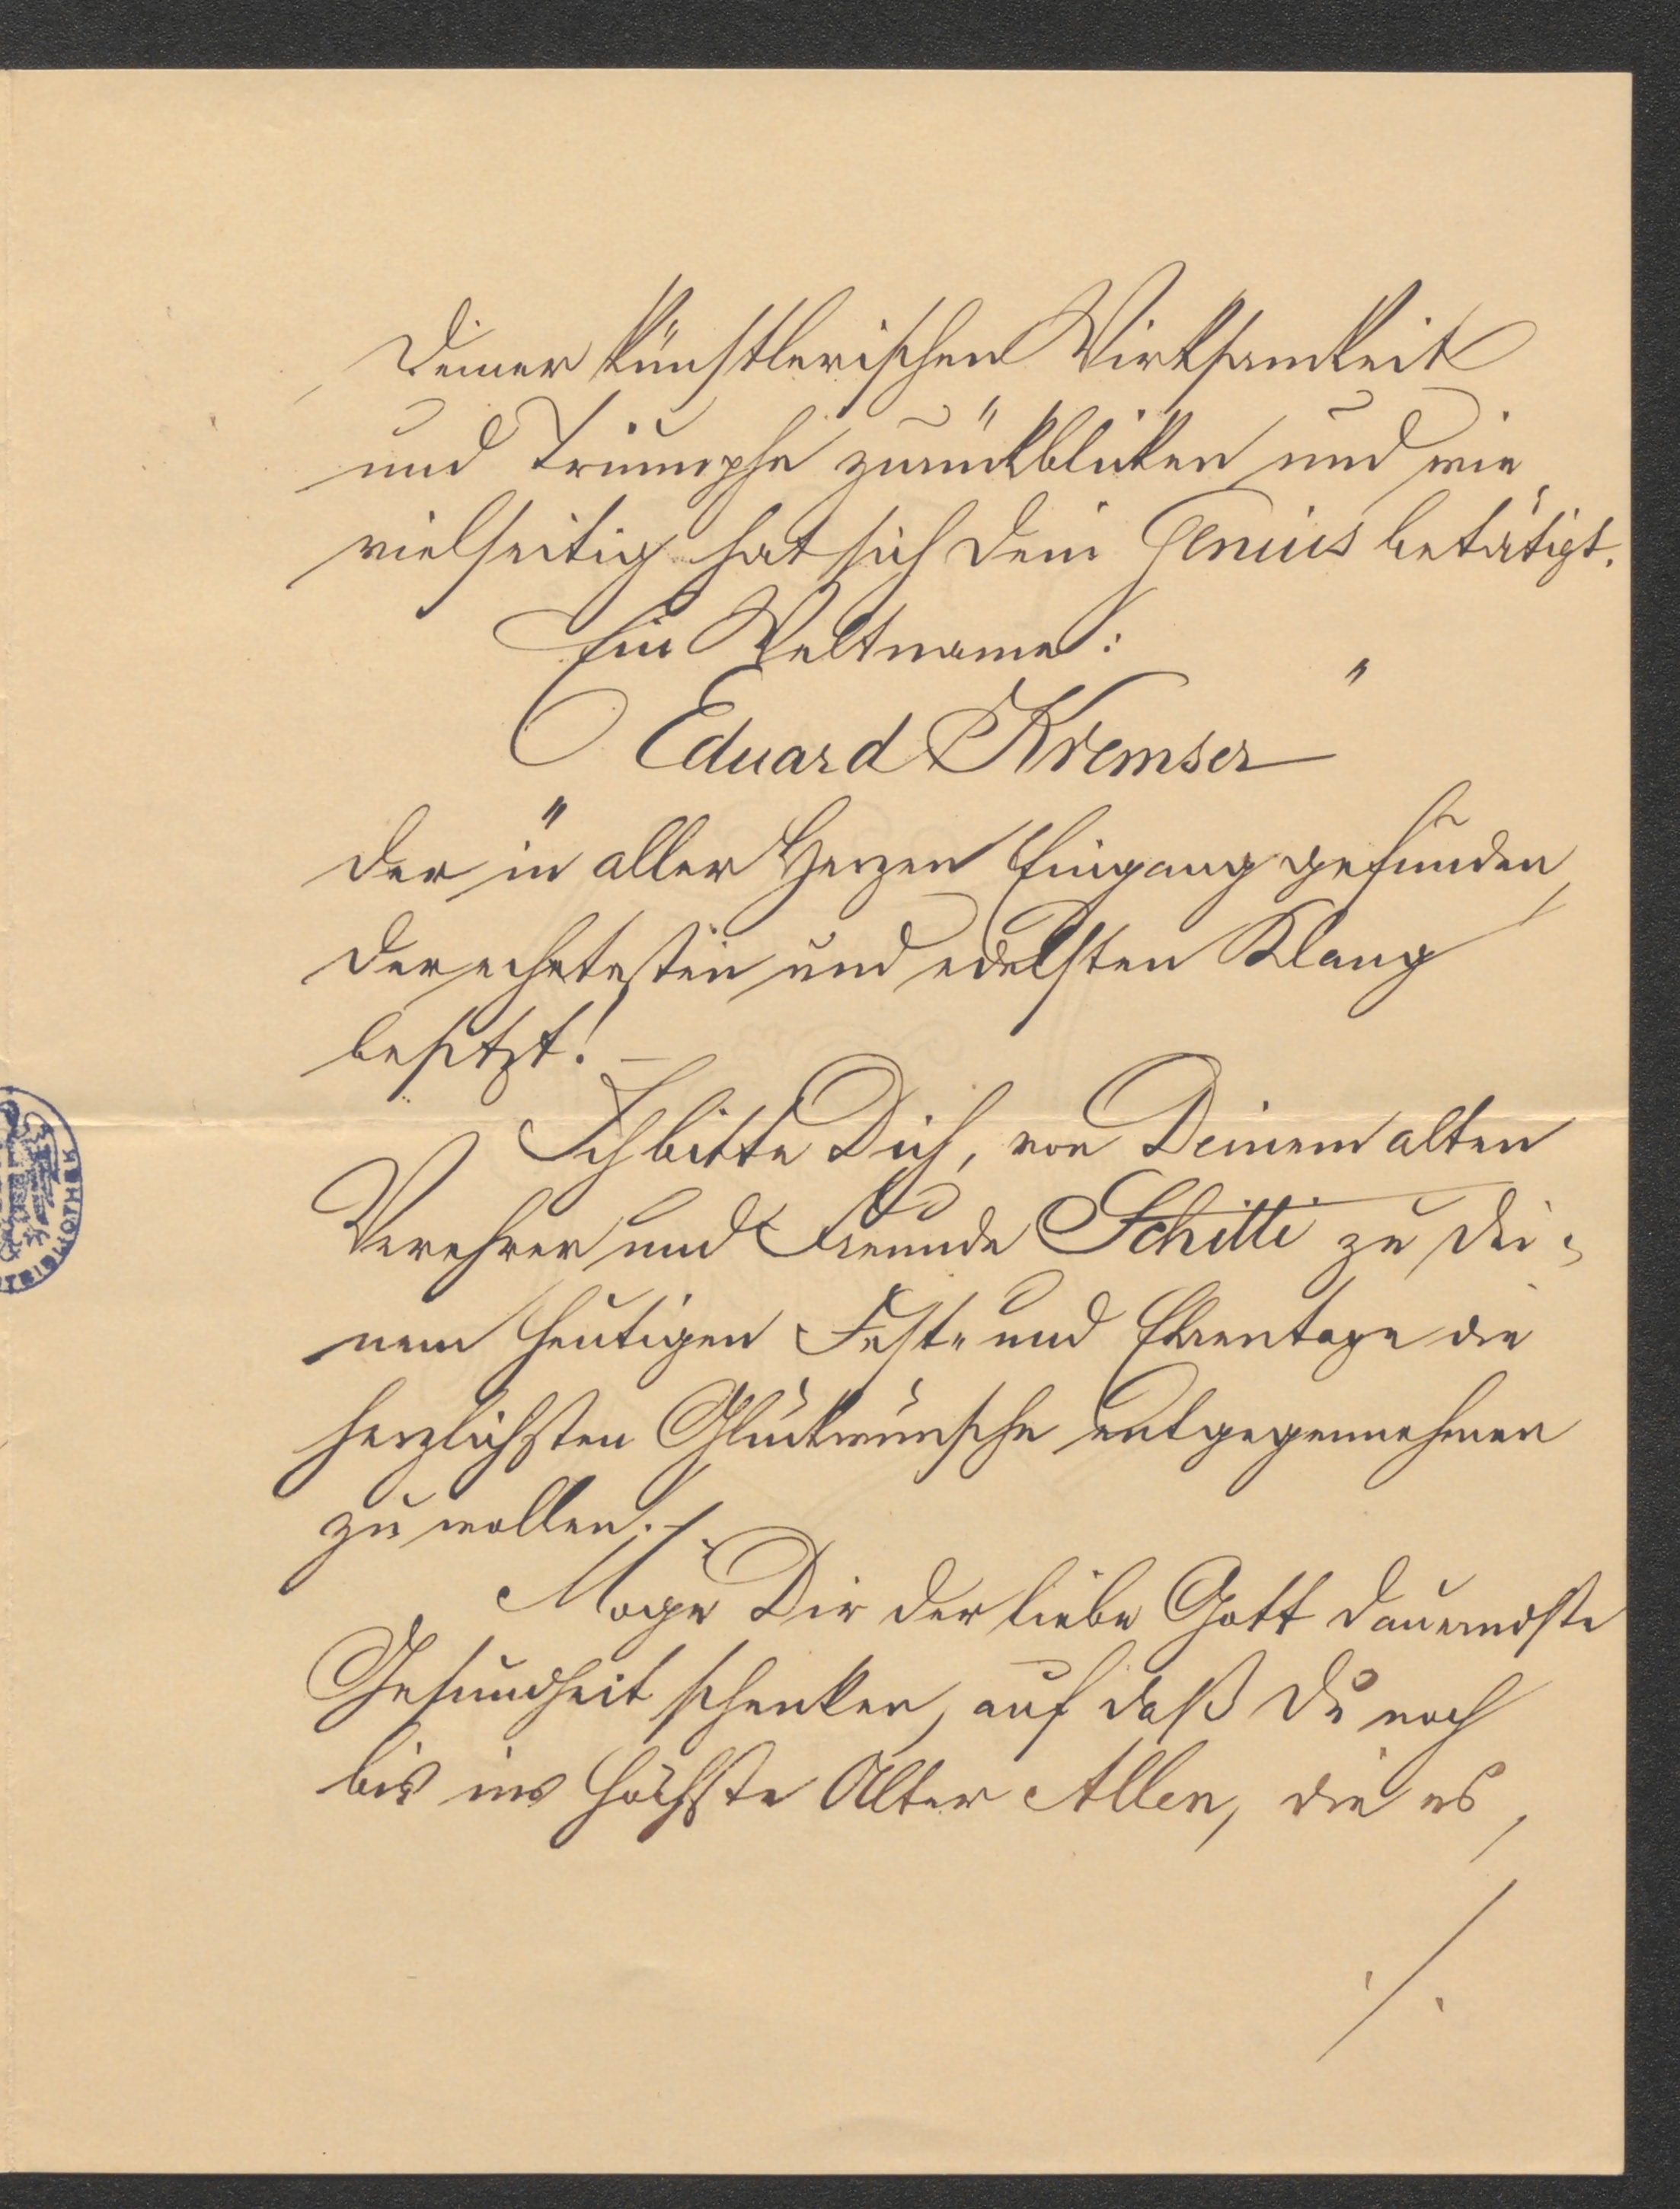 Deiner künstlerischen Wirksamkeit
und Triumphe zurückblicken und wie
vielseitig hat sich Dein Genius betätigt.
Ein Weltname:
"Eduard Kremser"
der in aller Herzen Eingang gefunden,
der echtesten und edelsten Klang
besitzt! –
Ich bitte Dich, von Deinem alten
Verehrer und Freunde Schitti zu Dei=
nem heutigen Fest- und Ehrentage die
herzlichsten Glückwünsche entgegennehmen
zu wollen. –
Möge Dir der liebe Gott dauerndste
Gesundheit schenken, auf daß Du noch
bis ins höchste Alter Allen, die es,
./.